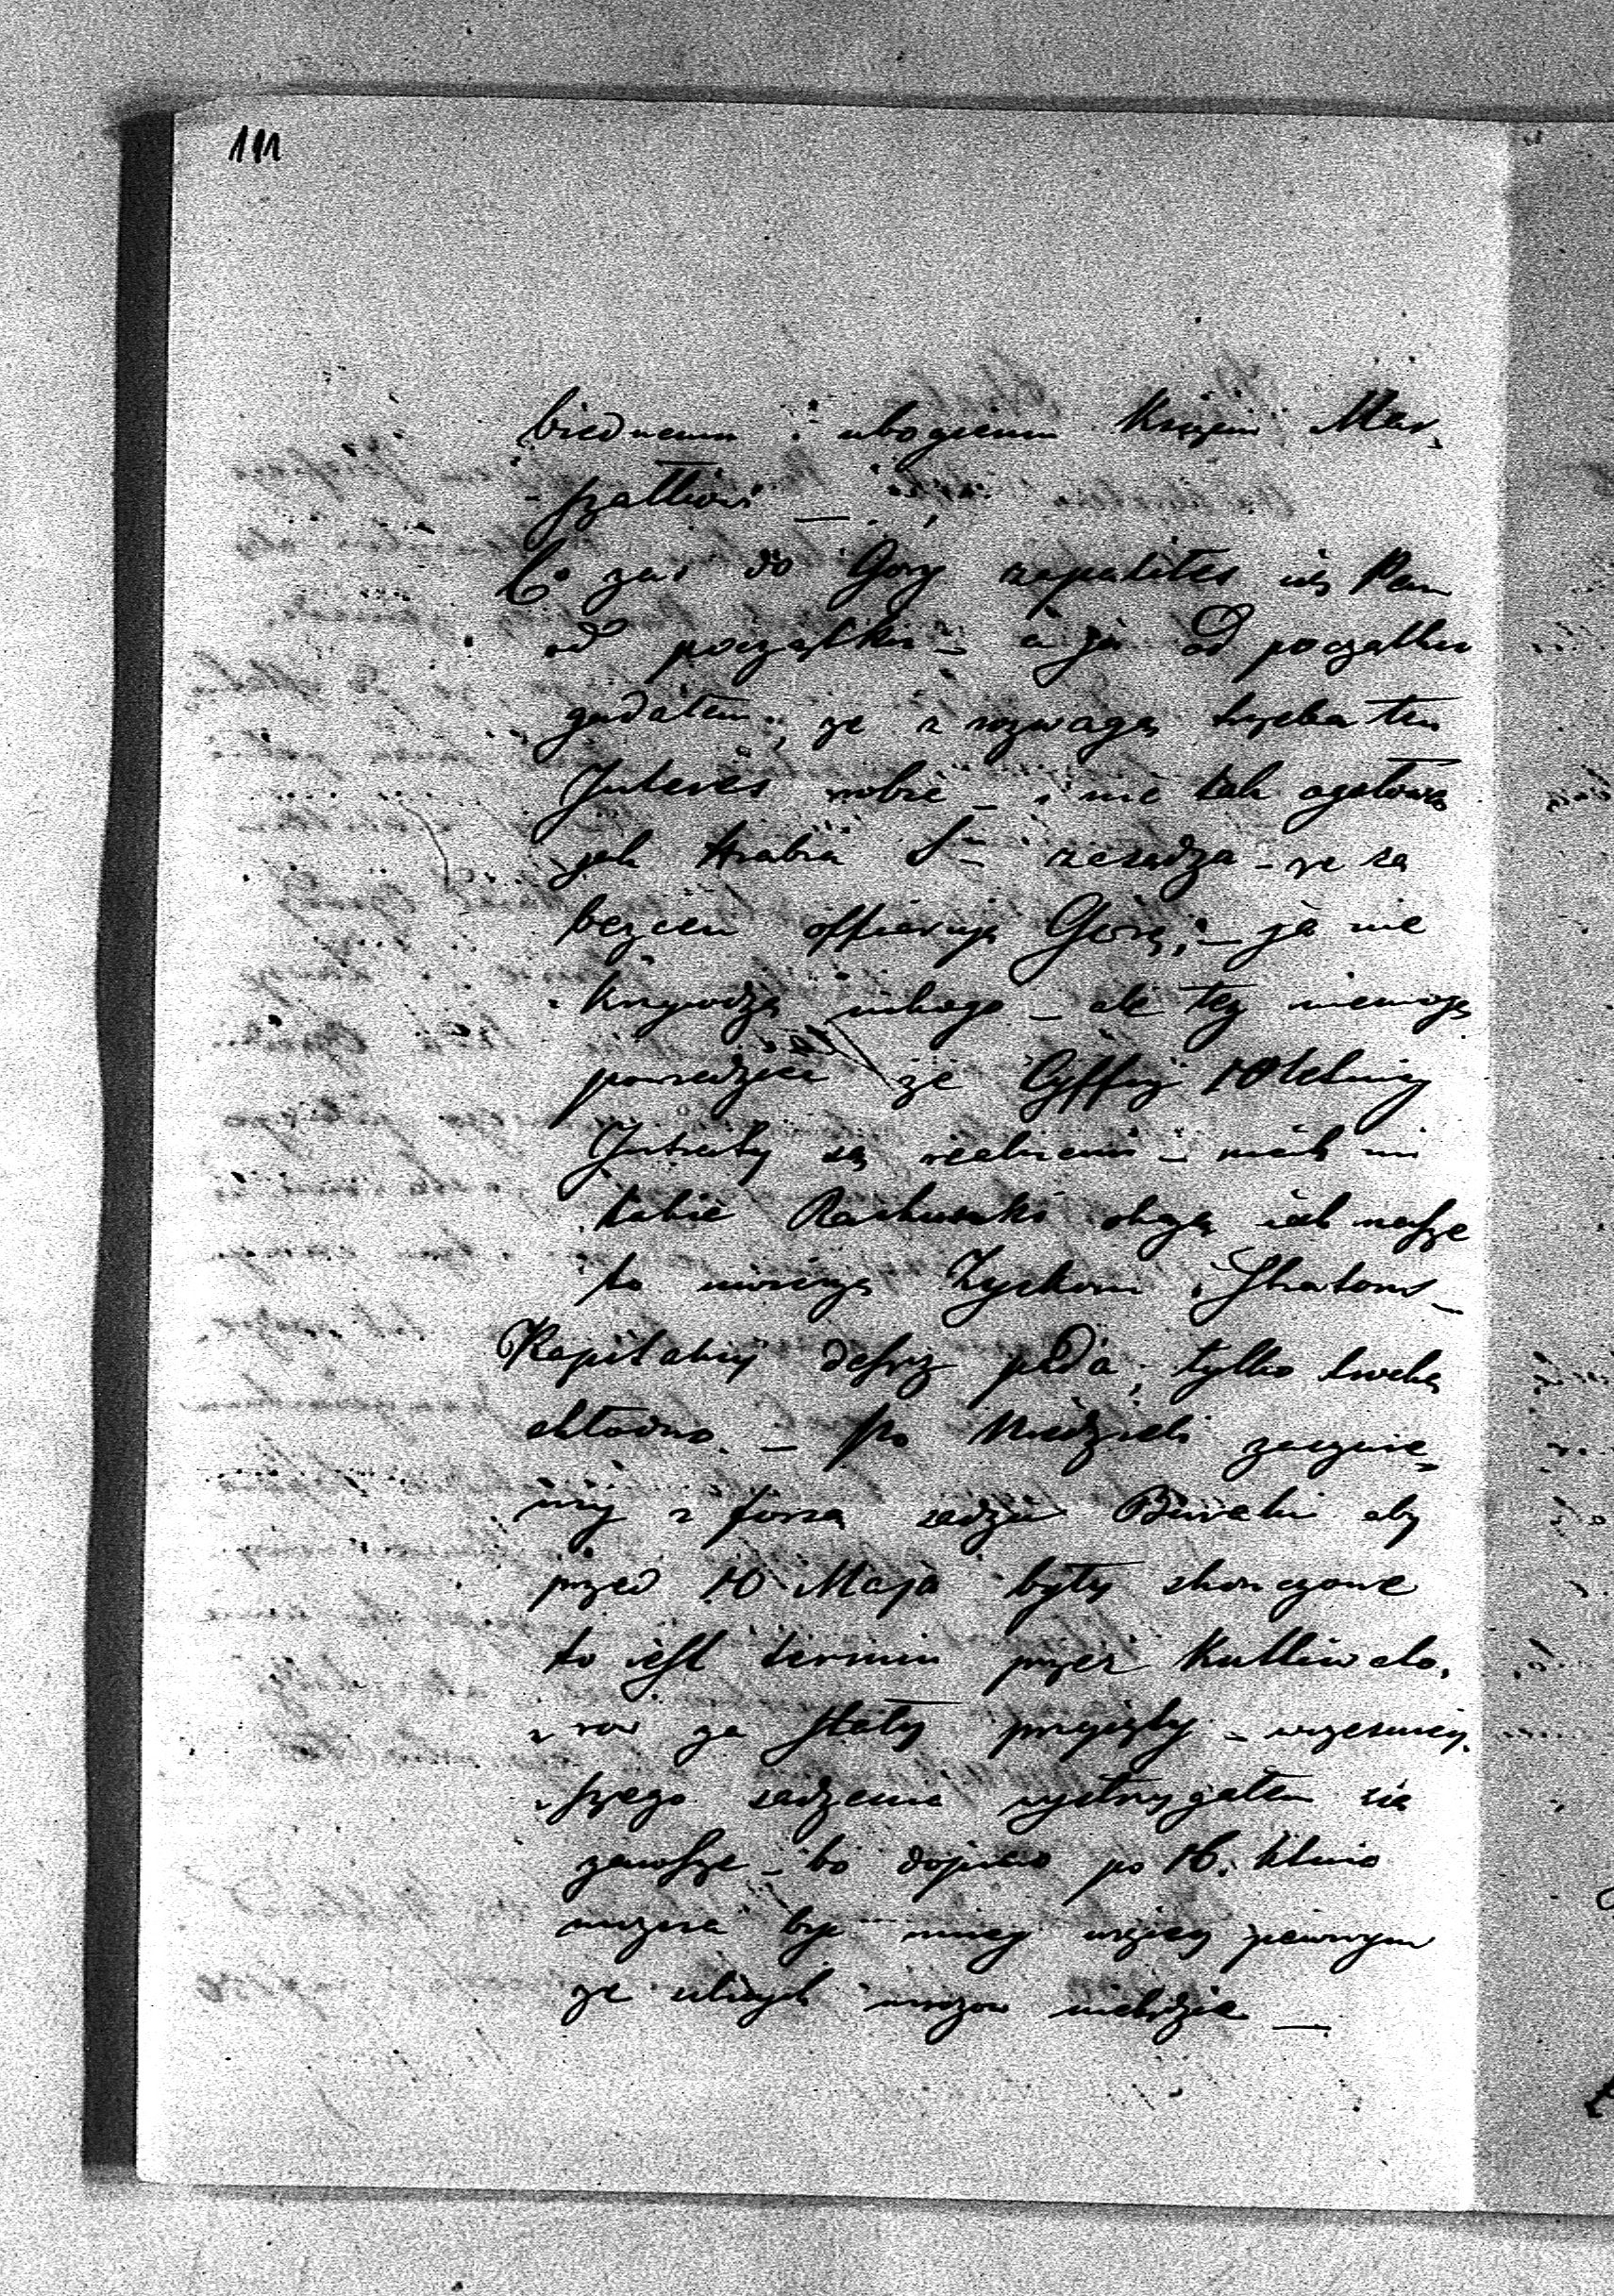 111
biednemu i ubogiemu Księciu Mar-
-szałkowi —
Co zaś do Gory zapaliłes się Pan
od początku – a ja od początku
gadałem, że z rozwagą trzeba ten
Interes robic – i nie tak ogołową
jak Hrabia S– zasadza – że za
bezcen offierują Górę; – ja nie
krzywdzę nikogo – ale też niemogę
powiedziec że Cyffry 10letniey
Intraty są – niech mi
takie Rachunki okażą iak nasze
to uwierzę Zyskom i Stratom –
Kapitalny deszcz pada, tylko trochę
chłodno. – Po Niedzieli zacznie-
my z forsą sadzic Buraki aby
przed 10 Maja były skonczone
to iest termin przez Kultiwato-
-row za stały przyięty – wczesniey-
-szego sadzenia wystrzygałem się
zawsze – bo dopiero po 16. Kwie
można byc mniey więcey pewnym
że silnych mrozow niebędzie —